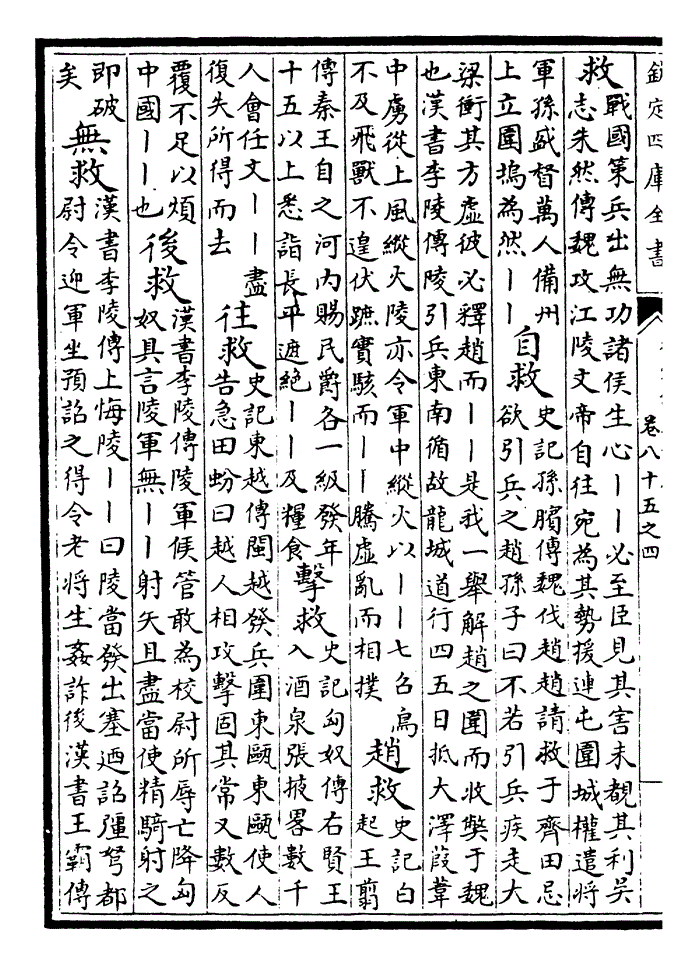 欽定四庫全書
卷八十五之四
救
戰國策兵出無功諸侯生心丨丨必至臣見其害未覩其利吳
志朱然傳魏攻江陵文帝自往宛為其勢援連屯圍城權遣將
軍孫盛督萬人備州
上立圍塢為然丨丨
自救
史記孫臏傳魏伐趙趙請救于齊田忌
欲引兵之趙孫子曰不若引兵疾走大
梁衝其方虛彼必釋趙而丨丨是我一舉解趙之圍而收獘于魏
也漢書李陵傳陵引兵東南循故龍城道行四五日抵大澤葭葦
中虜從上風縱火陵亦令軍中縱火以丨丨七召鳥
不及飛獸不遑伏蹠實駭而丨丨騰虛亂而相撲
趙救
史記白
起王翦
傳秦王自之河内賜民爵各一級發年
十五以上悉詣長平遮絶丨丨及糧食
擊救
史記匈奴傳右賢王
入酒泉張掖畧數千
人會任文丨丨盡
復失所得而去
往救
史記東越傳閩越發兵圍東甌東甌使人
告急田蚡曰越人相攻擊固其常又數反
覆不足以煩
中國丨丨也
後救
漢書李陵傳陵軍候管敢為校尉所辱亡降匈
奴具言陵軍無丨丨射矢且盡當使精騎射之
即破
矣
無救
漢書李陵傳上悔陵丨丨曰陵當發出塞迺詔彊弩都
尉令迎軍坐預詔之得令老將生姦詐後漢書王霸傳